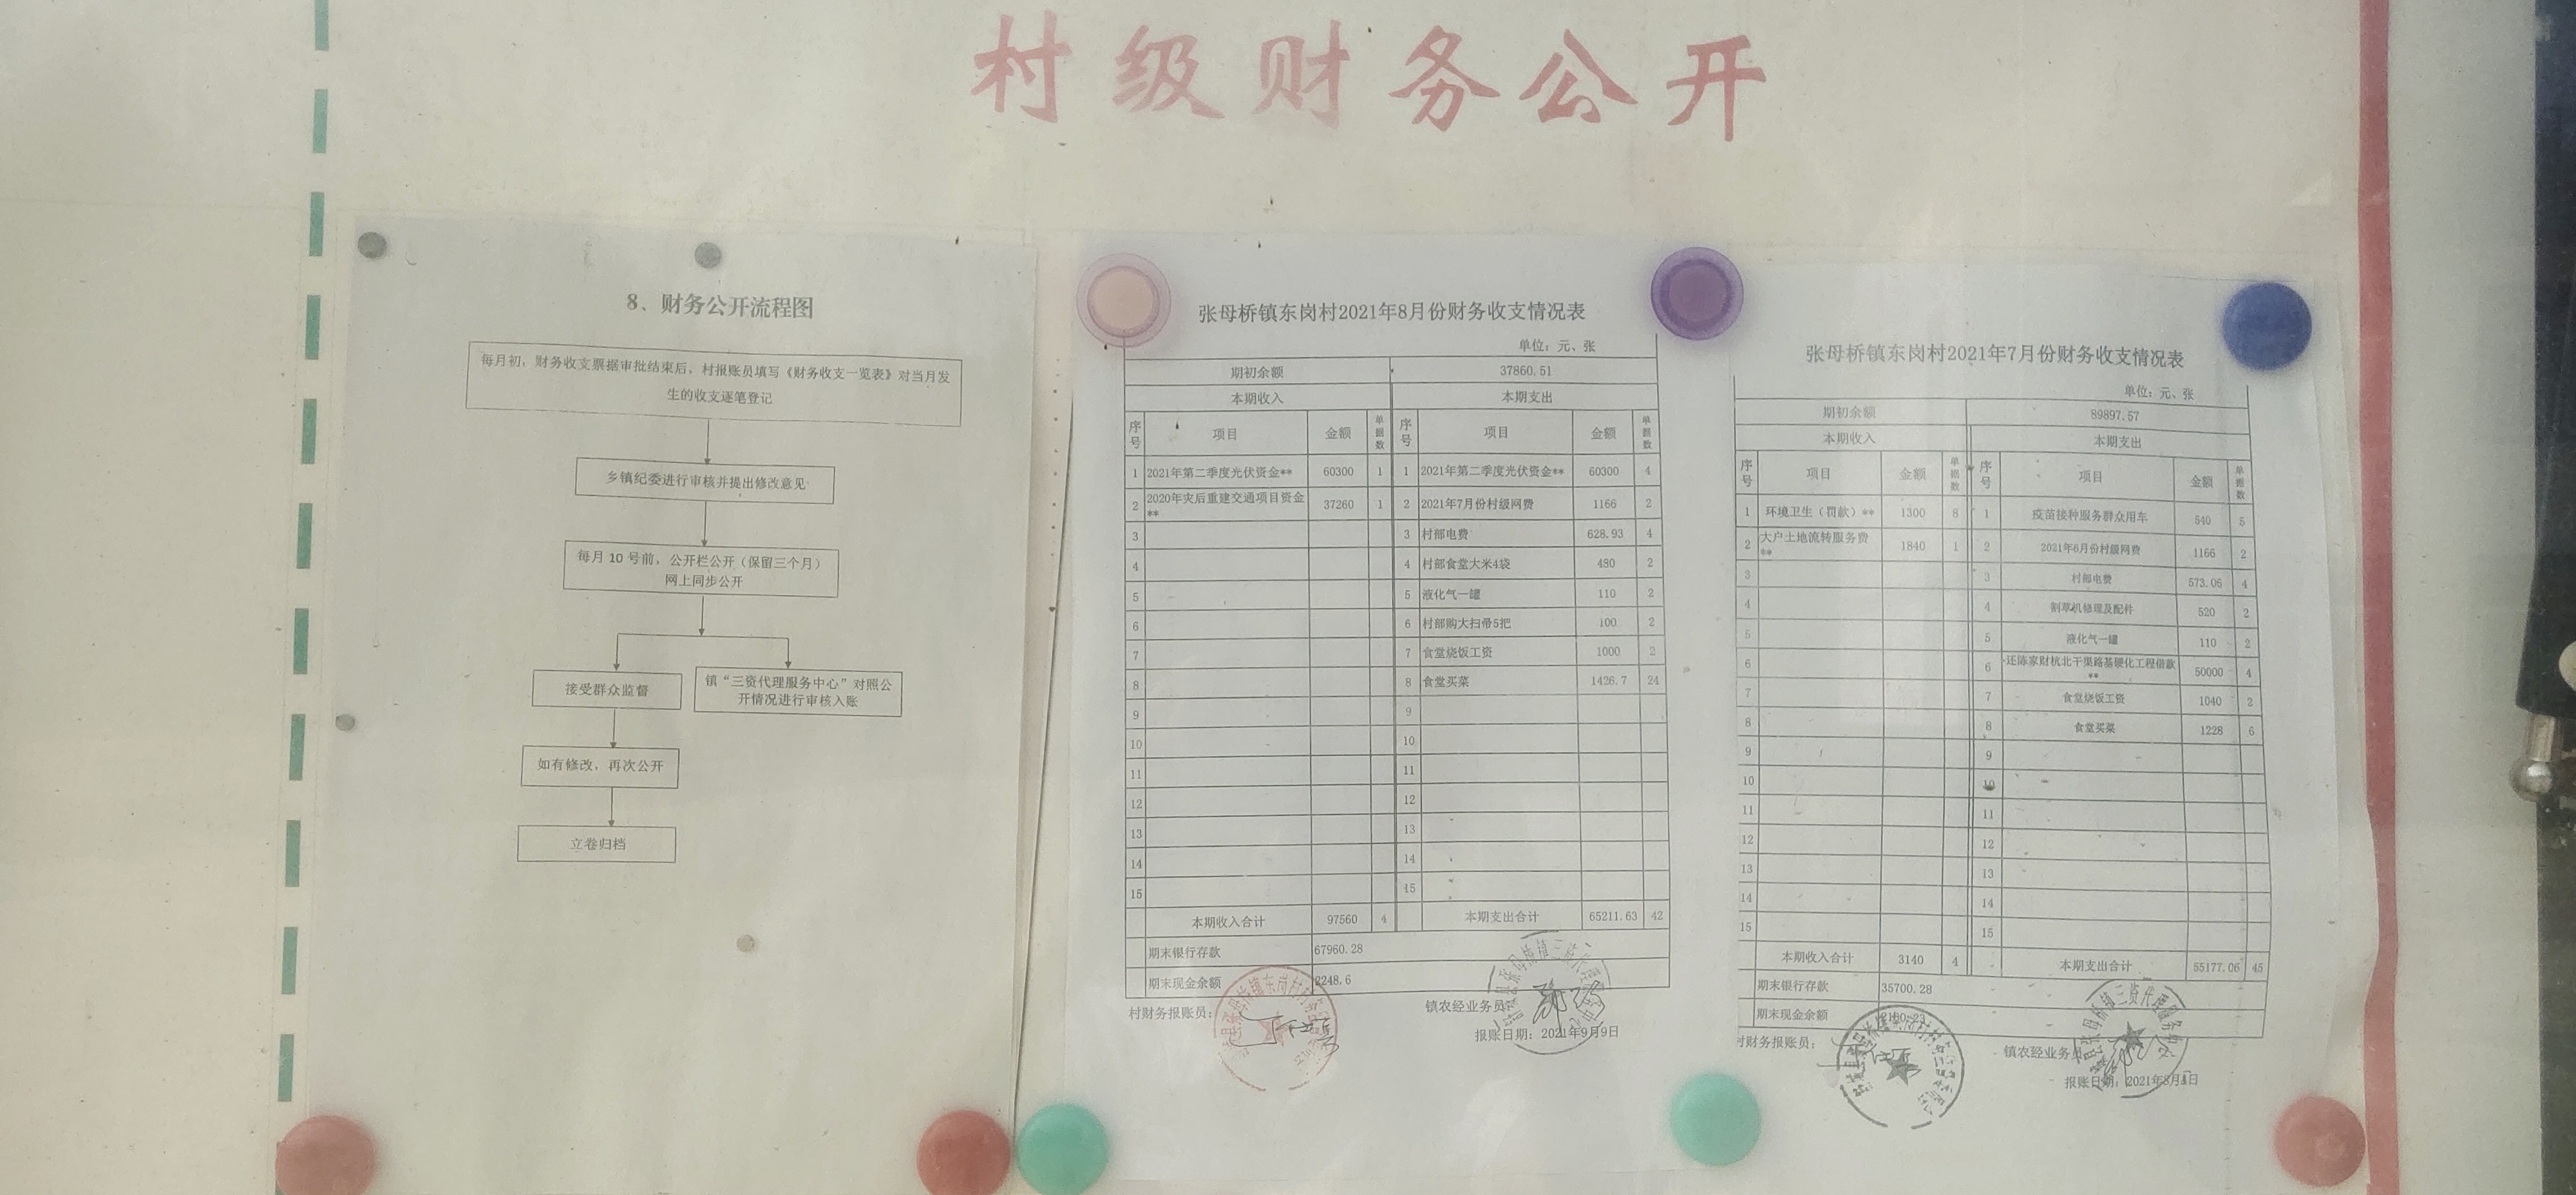 村级财务公开
8、财务公开流程图
每月初，财务收支票据审批结束后，村报账员填写《财务收支一览表》对当月发
生的收支逐笔登记
乡镇纪委进行审核并提出修改意见
每月10号前，公开栏公开（保留三个月）
网上同步公开
接受群众监督
镇“三资代理服务中心”对照公
开情况进行审核入账
如有修改，再次公开
立卷归档
张母桥镇东岗村2021年8月份财务收支情况表
单位：元、张
期初余额 37860.51
本期收入 本期支出
序号 项目 金额 单据数 序号 项目 金额 单据数
1 2021年第二季度光伏资金** 60300 1 1 2021年第二季度光伏资金** 60300 4
2 2020年灾后重建交通项目资金** 37260 1 2 2021年7月份村级网费 1166 2
3 3 村部电费 628.93 4
4 4 村部食堂大米4袋 480 2
5 5 液化气一罐 110 2
6 6 村部购大扫帚5把 100 2
7 7 食堂烧饭工资 1000 2
8 8 食堂买菜 1426.7 24
9 9
10 10
11 11
12 12
13 13
14 14
15 15
本期收入合计 97560 4 本期支出合计 65211.63 42
期末银行存款 67960.28
期末现金余额 2248.6
村财务报账员： 镇农经业务员
报账日期：2021年9月9日
张母桥镇东岗村2021年7月份财务收支情况表
单位：元、张
期初余额 89897.57
本期收入 本期支出
序号 项目 金额 单据数 序号 项目 金额 单据数
1 环境卫生（罚款）** 1300 8 1 疫苗接种服务群众用车 540 5
2 大户土地流转服务费** 1840 1 2 2021年6月份村级网费 1166 2
3 3 村部电费 573.06 4
4 4 割草机修理及配件 520 2
5 5 液化气一罐 110 2
6 6 还陈家财杭北干渠路基硬化工程借款** 50000 4
7 7 食堂烧饭工资 1040 2
8 8 食堂买菜 1228 6
9 9
10 10
11 11
12 12
13 13
14 14
15 15
本期收入合计 3140 4 本期支出合计 55177.06 45
期末银行存款 35700.28
期末现金余额
村财务报账员： 镇农经业务员
报账日期：2021年8月